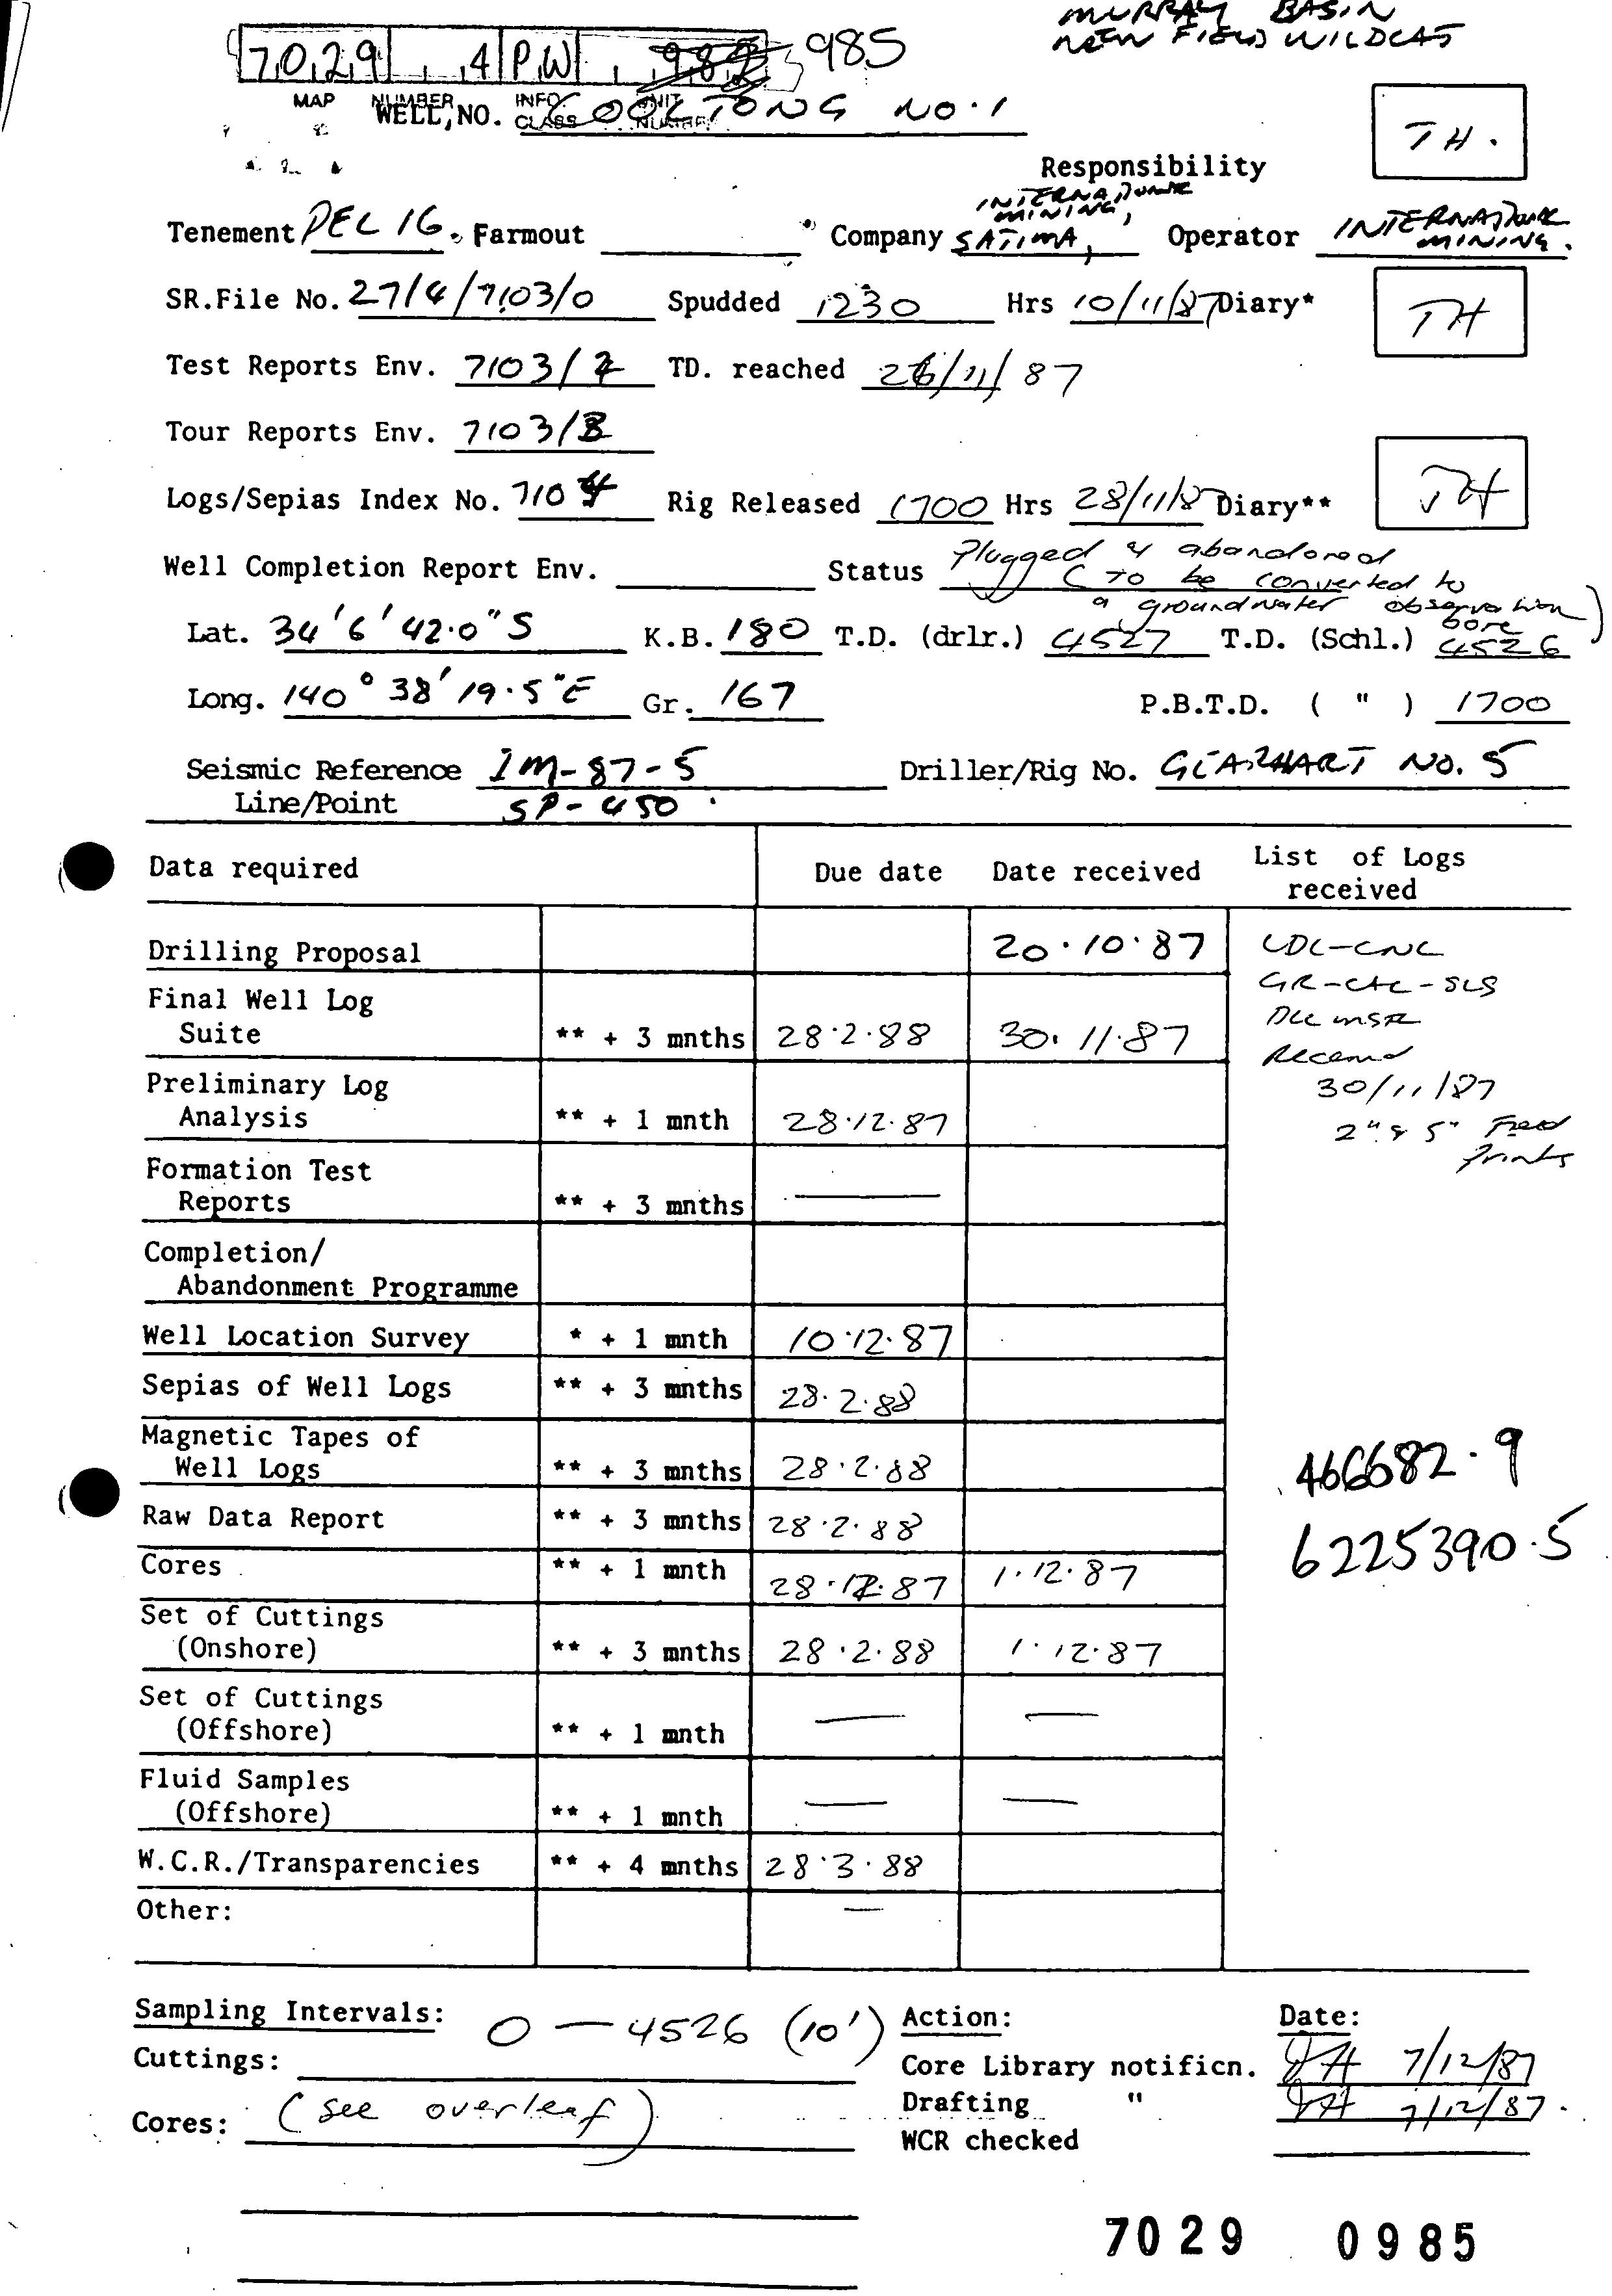 MURRAY BASIN
NEW FIELD WILDCAT
7029 4 PW 985
MAP NUMBER INFO CLASS UNIT NUMBER
WELL NO. COOLTONG NO.1
TH.
Responsibility
INTERNATIONAL
MINING,
Tenement PEL 16. Farmout Company SATIMA, Operator INTERNATIONAL
MINING.
SR.File No. 27/4/7103/0 Spudded 1230 Hrs 10/11/87 Diary*
TH
Test Reports Env. 7103/2 TD. reached 26/11/87
Tour Reports Env. 7103/3
Logs/Sepias Index No. 7104 Rig Released 1700 Hrs 28/11/87 Diary**
TH
Well Completion Report Env. Status Plugged & abandoned
(to be converted to
a groundwater observation
bore)
Lat. 34'6'42.0"S K.B. 180 T.D. (drlr.) 4527 T.D. (Schl.) 4526
Long. 140° 38' 19.5"E Gr. 167 P.B.T.D. ( " ) 1700
Seismic Reference IM-87-5 Driller/Rig No. GEARHART NO. 5
Line/Point SP-450
Data required Due date Date received List of Logs
received
Drilling Proposal 20.10.87 LDL-CNL
GR-CAL-SLS
Final Well Log
Suite ** + 3 mnths 28.2.88 30.11.87 DLL MSFL
Received
Preliminary Log 30/11/87
Analysis ** + 1 mnth 28.12.87 2" & 5" Field
prints
Formation Test
Reports ** + 3 mnths —
Completion/
Abandonment Programme
Well Location Survey * + 1 mnth 10.12.87
Sepias of Well Logs ** + 3 mnths 28.2.88
Magnetic Tapes of
Well Logs ** + 3 mnths 28.2.88 466682.9
Raw Data Report ** + 3 mnths 28.2.88
6225390.5
Cores ** + 1 mnth 28.12.87 1.12.87
Set of Cuttings
(Onshore) ** + 3 mnths 28.2.88 1.12.87
Set of Cuttings
(Offshore) ** + 1 mnth — —
Fluid Samples
(Offshore) ** + 1 mnth — —
W.C.R./Transparencies ** + 4 mnths 28.3.88
Other: —
Sampling Intervals: Action: Date:
Cuttings: 0 — 4526 (10') Core Library notificn. TH 7/12/87
Drafting " TH 7/12/87.
Cores: (see overleaf)
WCR checked
7029 0985